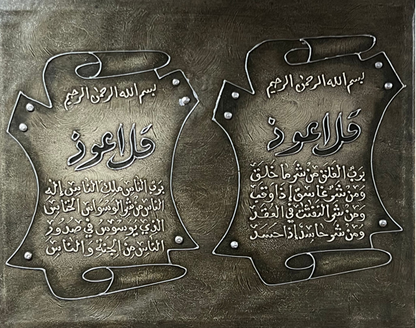 بسم الله الرحمن الرحيم
قل اعوذ
برب الفلق من شر ما خلق
ومن شر غاسق إذا وقب
ومن شر النفثت في العقد
ومن شر حاسد إذا حسد
بسم الله الرحمن الرحيم
قل اعوذ
برب الناس ملك الناس إله
الناس من شر الوسواس الخناس
الذي يوسوس في صدور
الناس من الجنة والناس